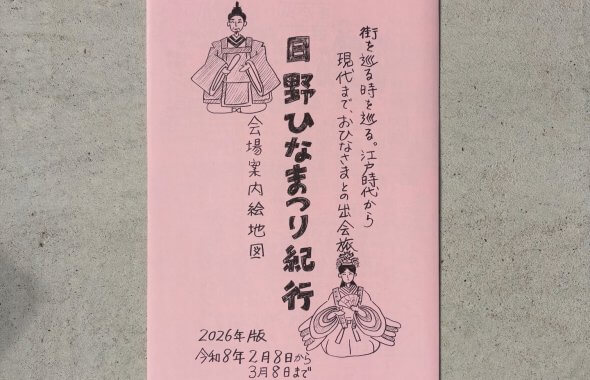 街を巡る時を巡る。江戸時代から
現代まで、おひなさまとの出会旅
日野ひなまつり紀行
会場案内絵地図
2026年版
令和8年2月8日から
3月8日まで